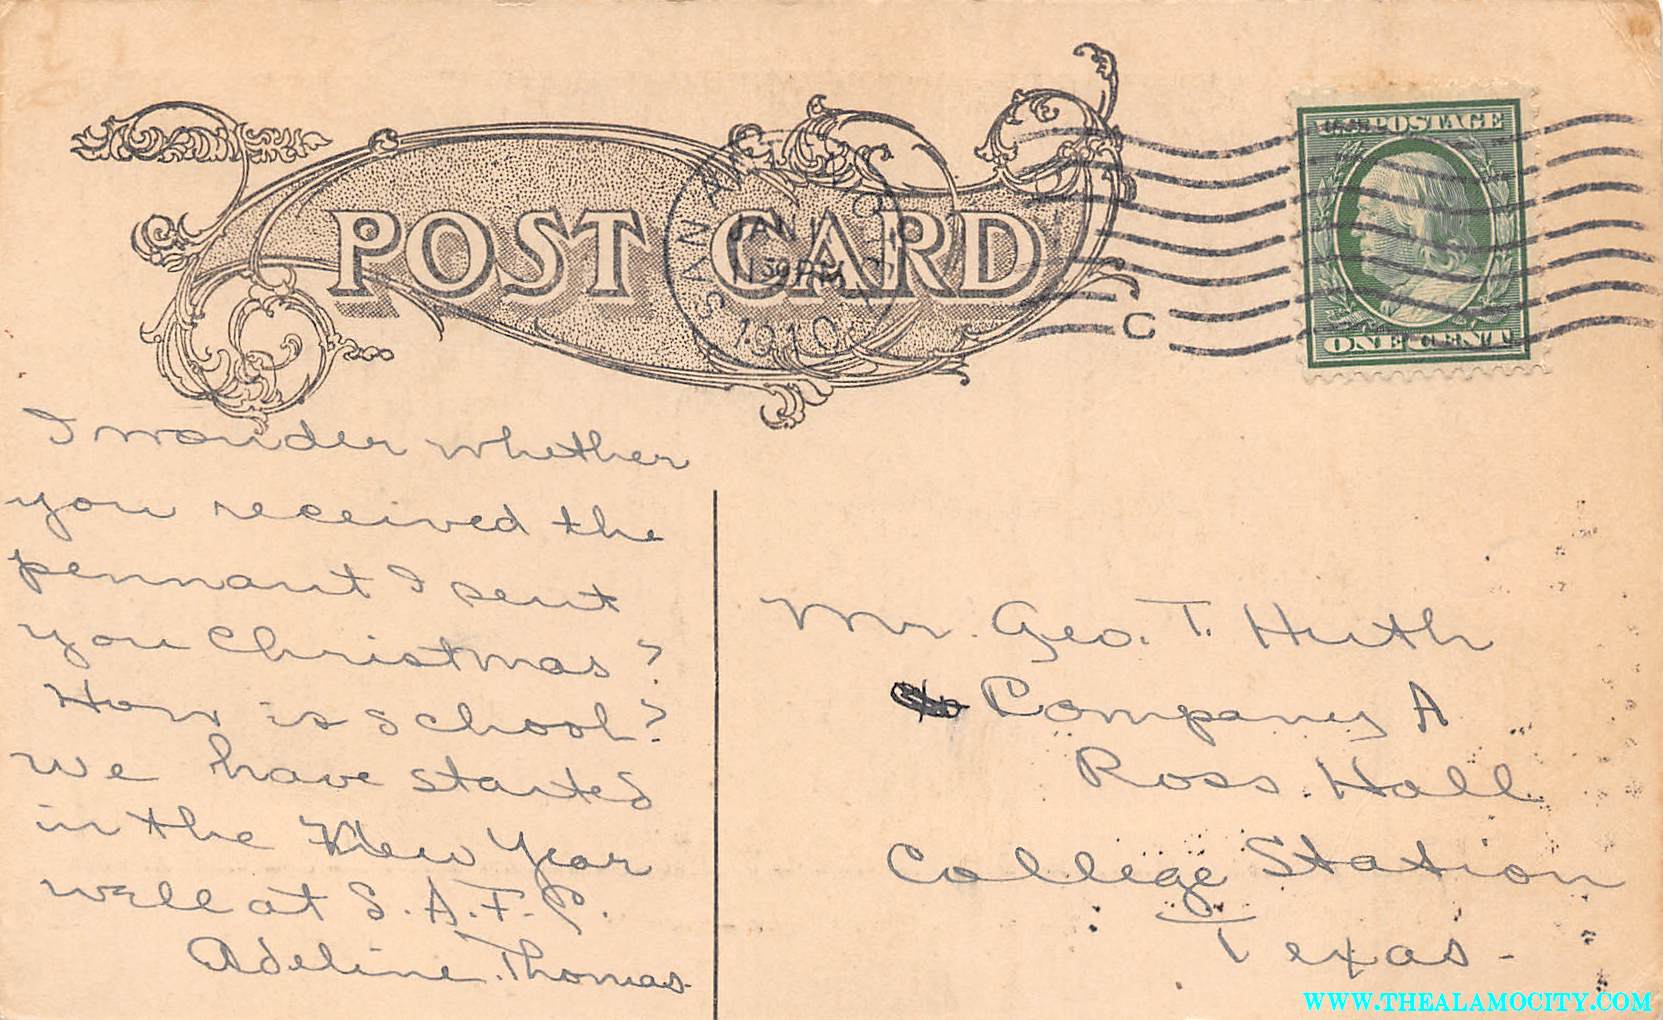 POST CARD
SAN ANTONIO
JAN
11 30 PM
1910
C
POSTAGE
ONE CENT
I wonder whether
you received the
pennant I sent
you Christmas?
How is school?
We have started
in the New Year
well at S.A.F.P.
Adeline Thomas.
Mr. Geo. T. Huth
Company A
Ross Hall
College Station
Texas-
WWW.THEALAMOCITY.COM